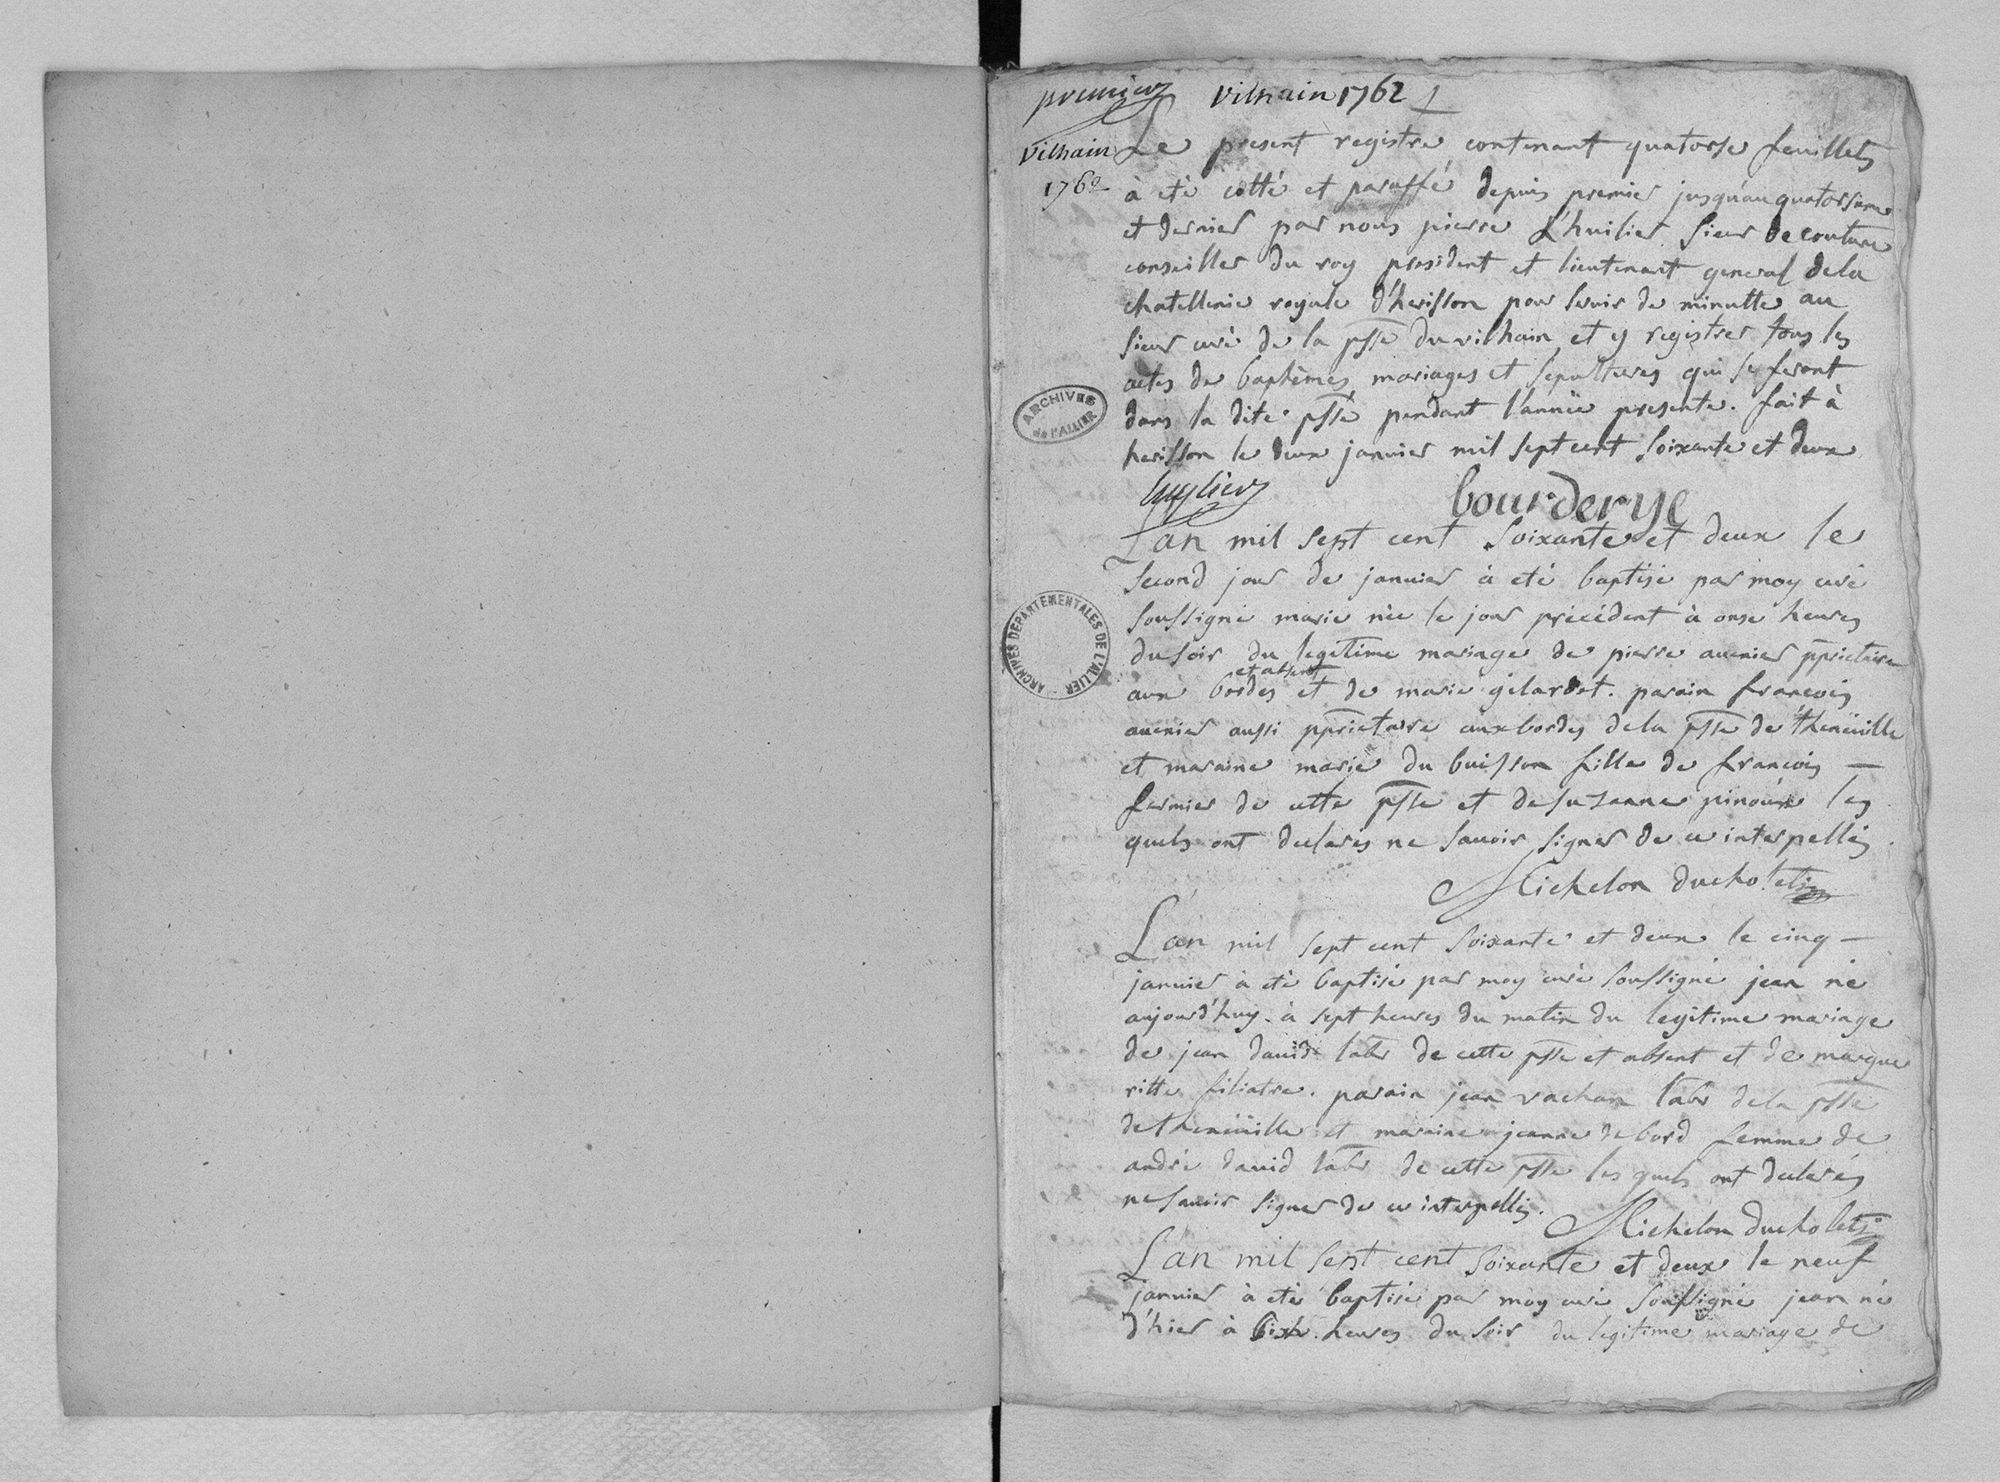 premier Vilhain 1762 1
Vilhain
1762
Le present registre contenant quatorse feuillets
à eté cotté et paraffé depuis premier jusqu'au quatorsieme
et dernier par nous pierre L'huilier sieur de couture
conseiller du roy president et lieutenant general dela
chatellenie royale d'herisson pour servir de minutte au
sieur curé de la psse du vilhain et y registrer tous les
actes de baptêmes mariages et sepultures qui se feront
dans la dite psse pendant l'année presente. fait à
herisson le deux janvier mil sept cent soixante et deux
bourderye
L'an mil sept cent soixante et deux le
second jour de janvier à eté baptisé par moy curé
soussigné marie née le jour précédent à onse heures
du soir du legitime mariage de pierre auenier pprietaire
et absent
aux bordes et de marie gilardet. parain francois
auenier aussi pprietaire aux bordes dela psse de theneüille
et maraine marie du buisson fille de francois —
fermier de cette psse et de suzanne pinoux les
quels ont declarés ne savoir signer de ce interpellés
Michelon ducholets
L'an mil sept cent soixante et deux le cinq —
janvier à eté baptisé par moy curé soussigné jean né
aujourd'huy à sept heures du matin du legitime mariage
de jean david labr de cette psse et absent et de margue
ritte filiatre. parain jean vachan labr dela psse
de theneüille et maraine jeanne de bord femme de
andré david labr de cette psse les quels ont declarés
ne savoir signer de ce interpellés.
Michelon ducholets
L'an mil sept cent soixante et deux le neuf
janvier à eté baptisé par moy curé soussigné jean né
d'hier à six heures du soir du legitime mariage de
ARCHIVES
de l'ALLIER
ARCHIVES DEPARTEMENTALES DE L'ALLIER